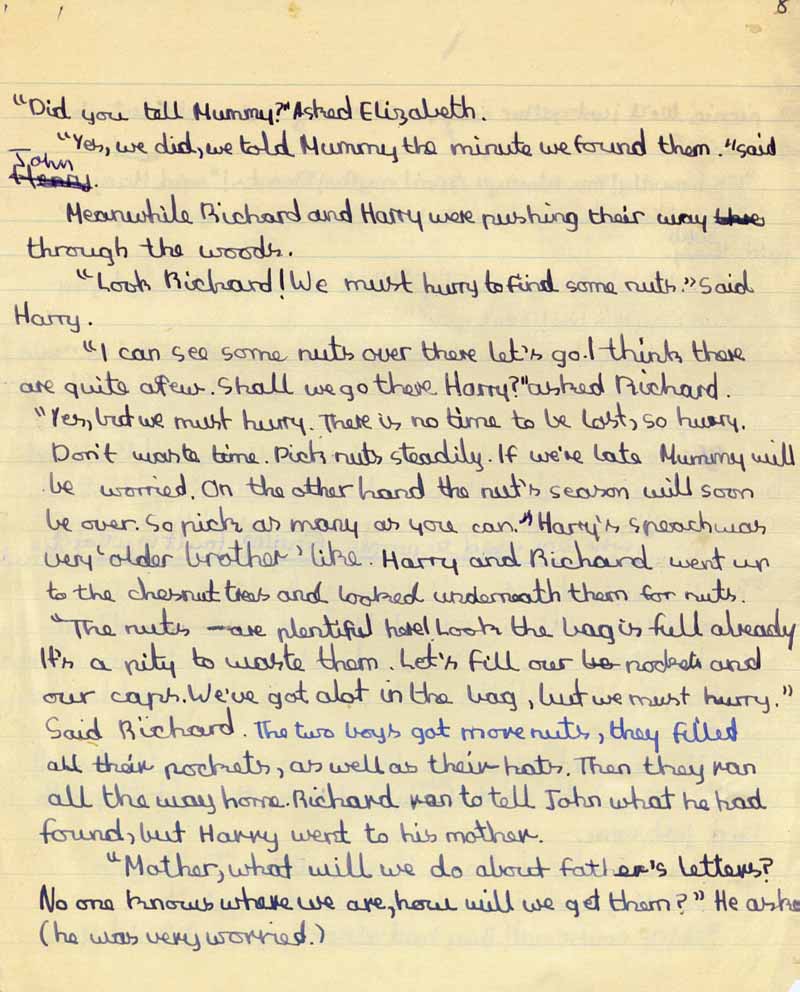 8
"Did you tell Mummy?" Asked Elizabeth.
"Yes, we did, we told Mummy the minute we found them." said
John
Henry.
Meanwhile Richard and Harry were pushing their way thre
through the woods.
"Look Richard! We must hurry to find some nuts." Said
Harry.
"I can see some nuts over there let's go. I think there
are quite afew. Shall we go there Harry?" asked Richard.
"Yes, but we must hurry. There is no time to be lost, so hurry.
Don't waste time. Pick nuts steadily. If we're late Mummy will
be worried. On the other hand the nut's season will soon
be over. So pick as many as you can." Harry's speach was
very 'older brother' like. Harry and Richard went up
to the chesnut trees and looked underneath them for nuts.
"The nuts are plentiful here! Look the bag is full already
It's a pity to waste them. Let's fill our be pockets and
our caps. We've got alot in the bag, but we must hurry."
Said Richard. The two boys got more nuts, they filled
all their pockets, as well as their hats. Then they ran
all the way home. Richard ran to tell John what he had
found, but Harry went to his mother.
"Mother, what will we do about father's letters?
No one knows where we are, how will we get them?" He aske
(he was very worried.)